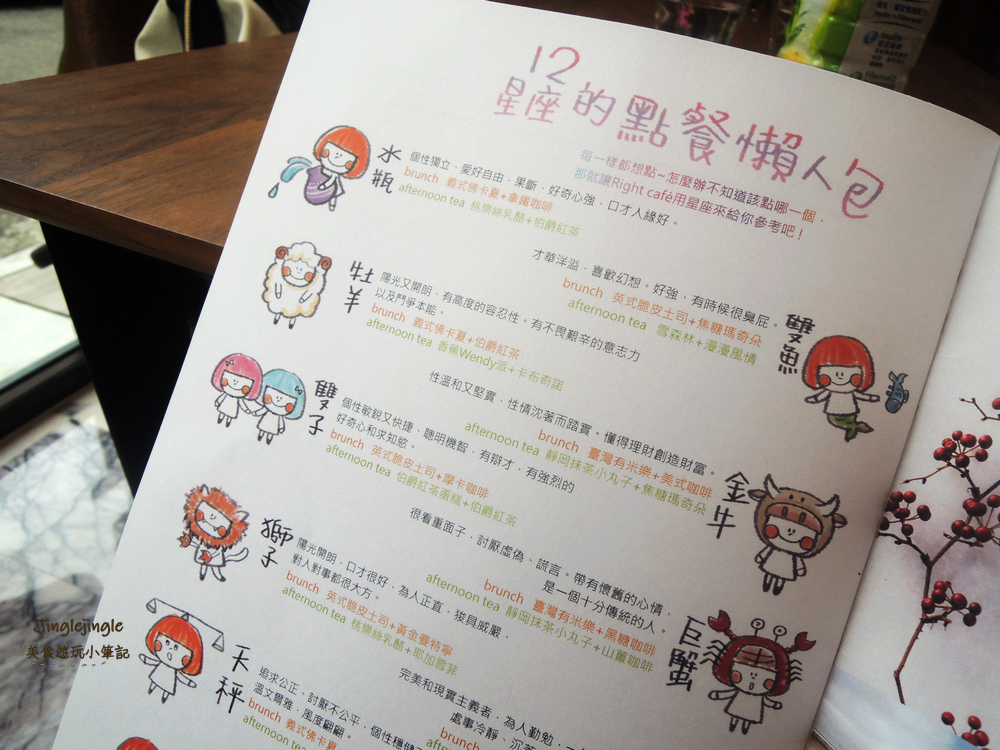 12
星座的點餐懶人包
每一樣都想點~怎麼辦不知道該點哪一個，
那就讓Right café用星座來給你參考吧！
水瓶
個性獨立，愛好自由，果斷，好奇心強，口才人緣好。
brunch 義式佛卡夏+拿鐵咖啡
afternoon tea 桃樂絲乳酪+伯爵紅茶
雙魚
才華洋溢，喜歡幻想。好強，有時候很臭屁。
brunch 英式脆皮土司+焦糖瑪奇朵
afternoon tea 雪森林+漫漫風情
牡羊
陽光又開朗，有高度的容忍性。有不畏艱辛的意志力
以及鬥爭本能。
brunch 義式佛卡夏+伯爵紅茶
afternoon tea 香蕉Wendy派+卡布奇諾
金牛
性溫和又堅實，性情沈著而踏實。懂得理財創造財富。
brunch 臺灣有米樂+美式咖啡
afternoon tea 靜岡抹茶小丸子+焦糖瑪奇朵
雙子
個性敏銳又快捷，聰明機智，有辯才，有強烈的
好奇心和求知慾。
brunch 英式脆皮土司+摩卡咖啡
afternoon tea 伯爵紅茶蛋糕+伯爵紅茶
巨蟹
很看重面子，討厭虛偽、謊言。帶有懷舊的心情，
是一個十分傳統的人。
brunch 臺灣有米樂+黑糖咖啡
afternoon tea 靜岡抹茶小丸子+山薑咖啡
獅子
陽光開朗，口才很好，為人正直，狻具威嚴，
對人對事都很大方。
brunch 英式脆皮土司+黃金曼特寧
afternoon tea 桃樂絲乳酪+耶加雪菲
完美和現實主義者，為人勤勉，
處事冷靜、沉著
brunch
天秤
追求公正，討厭不公平，個性穩健
溫文爾雅，風度翩翩。
brunch 義式佛卡夏
afternoon tea
Jinglejingle
美食遊玩小筆記